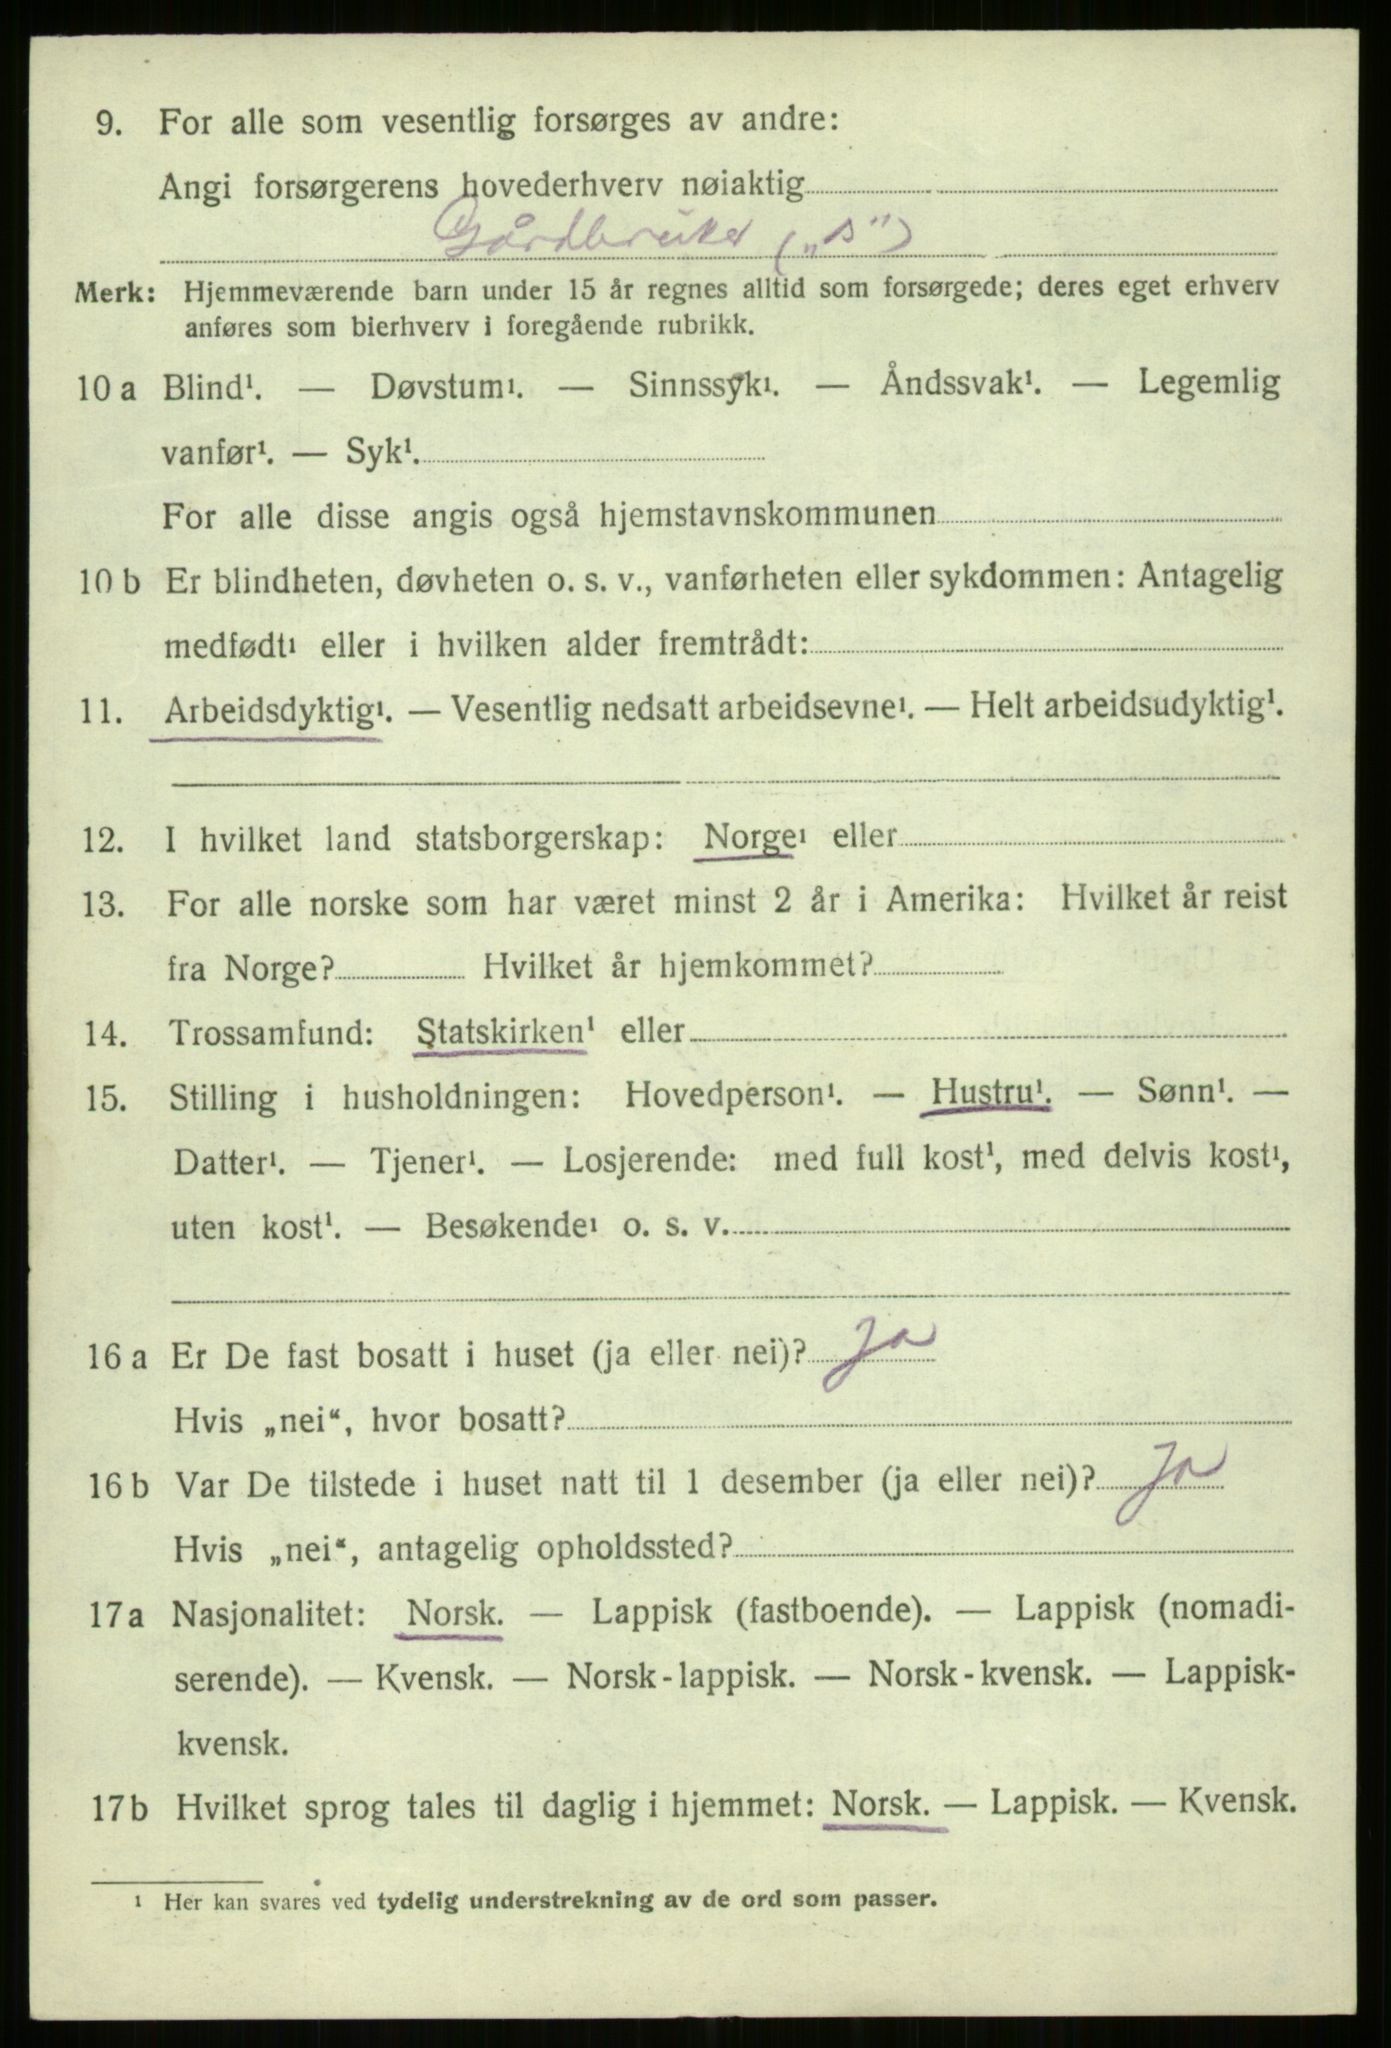 9. For alle som vesentlig forsørges av andre:
Angi forsørgerens hovederhverv nøiaktig
Gårdbruker („B")
Merk: Hjemmeværende barn under 15 år regnes alltid som forsørgede; deres eget erhverv
anføres som bierhverv i foregående rubrikk.
10 a Blind¹. — Døvstum¹. — Sinnssyk¹. — Åndssvak¹. — Legemlig
vanfør¹. — Syk¹.
For alle disse angis også hjemstavnskommunen
10 b Er blindheten, døvheten o. s. v., vanførheten eller sykdommen: Antagelig
medfødt¹ eller i hvilken alder fremtrådt:
11. Arbeidsdyktig¹. — Vesentlig nedsatt arbeidsevne¹. — Helt arbeidsudyktig¹.
12. I hvilket land statsborgerskap: Norge¹ eller
13. For alle norske som har været minst 2 år i Amerika: Hvilket år reist
fra Norge? Hvilket år hjemkommet?
14. Trossamfund: Statskirken¹ eller
15. Stilling i husholdningen: Hovedperson¹. — Hustru¹. — Sønn¹. —
Datter¹. — Tjener¹. — Losjerende: med full kost¹, med delvis kost¹,
uten kost¹. — Besøkende¹ o. s. v.
16 a Er De fast bosatt i huset (ja eller nei)? Ja
Hvis „nei“, hvor bosatt?
16 b Var De tilstede i huset natt til 1 desember (ja eller nei)? Ja
Hvis „nei“, antagelig opholdssted?
17 a Nasjonalitet: Norsk. — Lappisk (fastboende). — Lappisk (nomadi-
serende). — Kvensk. — Norsk-lappisk. — Norsk-kvensk. — Lappisk-
kvensk.
17 b Hvilket sprog tales til daglig i hjemmet: Norsk. — Lappisk. — Kvensk.
¹ Her kan svares ved tydelig understrekning av de ord som passer.